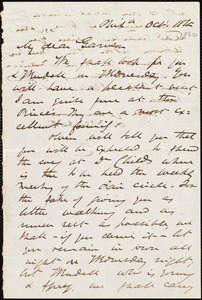 Phila Oct. 11th
My dear Garrison
We shall look for you
& Mindell on Wednesday. You
will have a pleasant visit
I am quite sure at the
Princes, they are a most ex-
cellent family.
Oliver will tell you that
you will be expected to spend
the eve at Dr Childs where
is to be held the weekly
meeting of the Clair circle. For
the sake of giving you as
little walking and as
much rest as possible we
shall - if you desire it - let
you remain in town all
night on Wednesday night,
but Mindell who is young
& spry, we shall carry